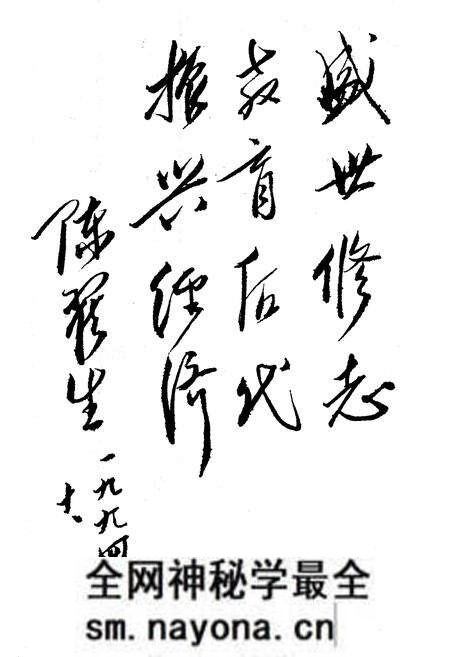 盛世修志
教育后代
振兴经济
陈发生
一九九四
十
全网神秘学最全
sm.nayona.cn